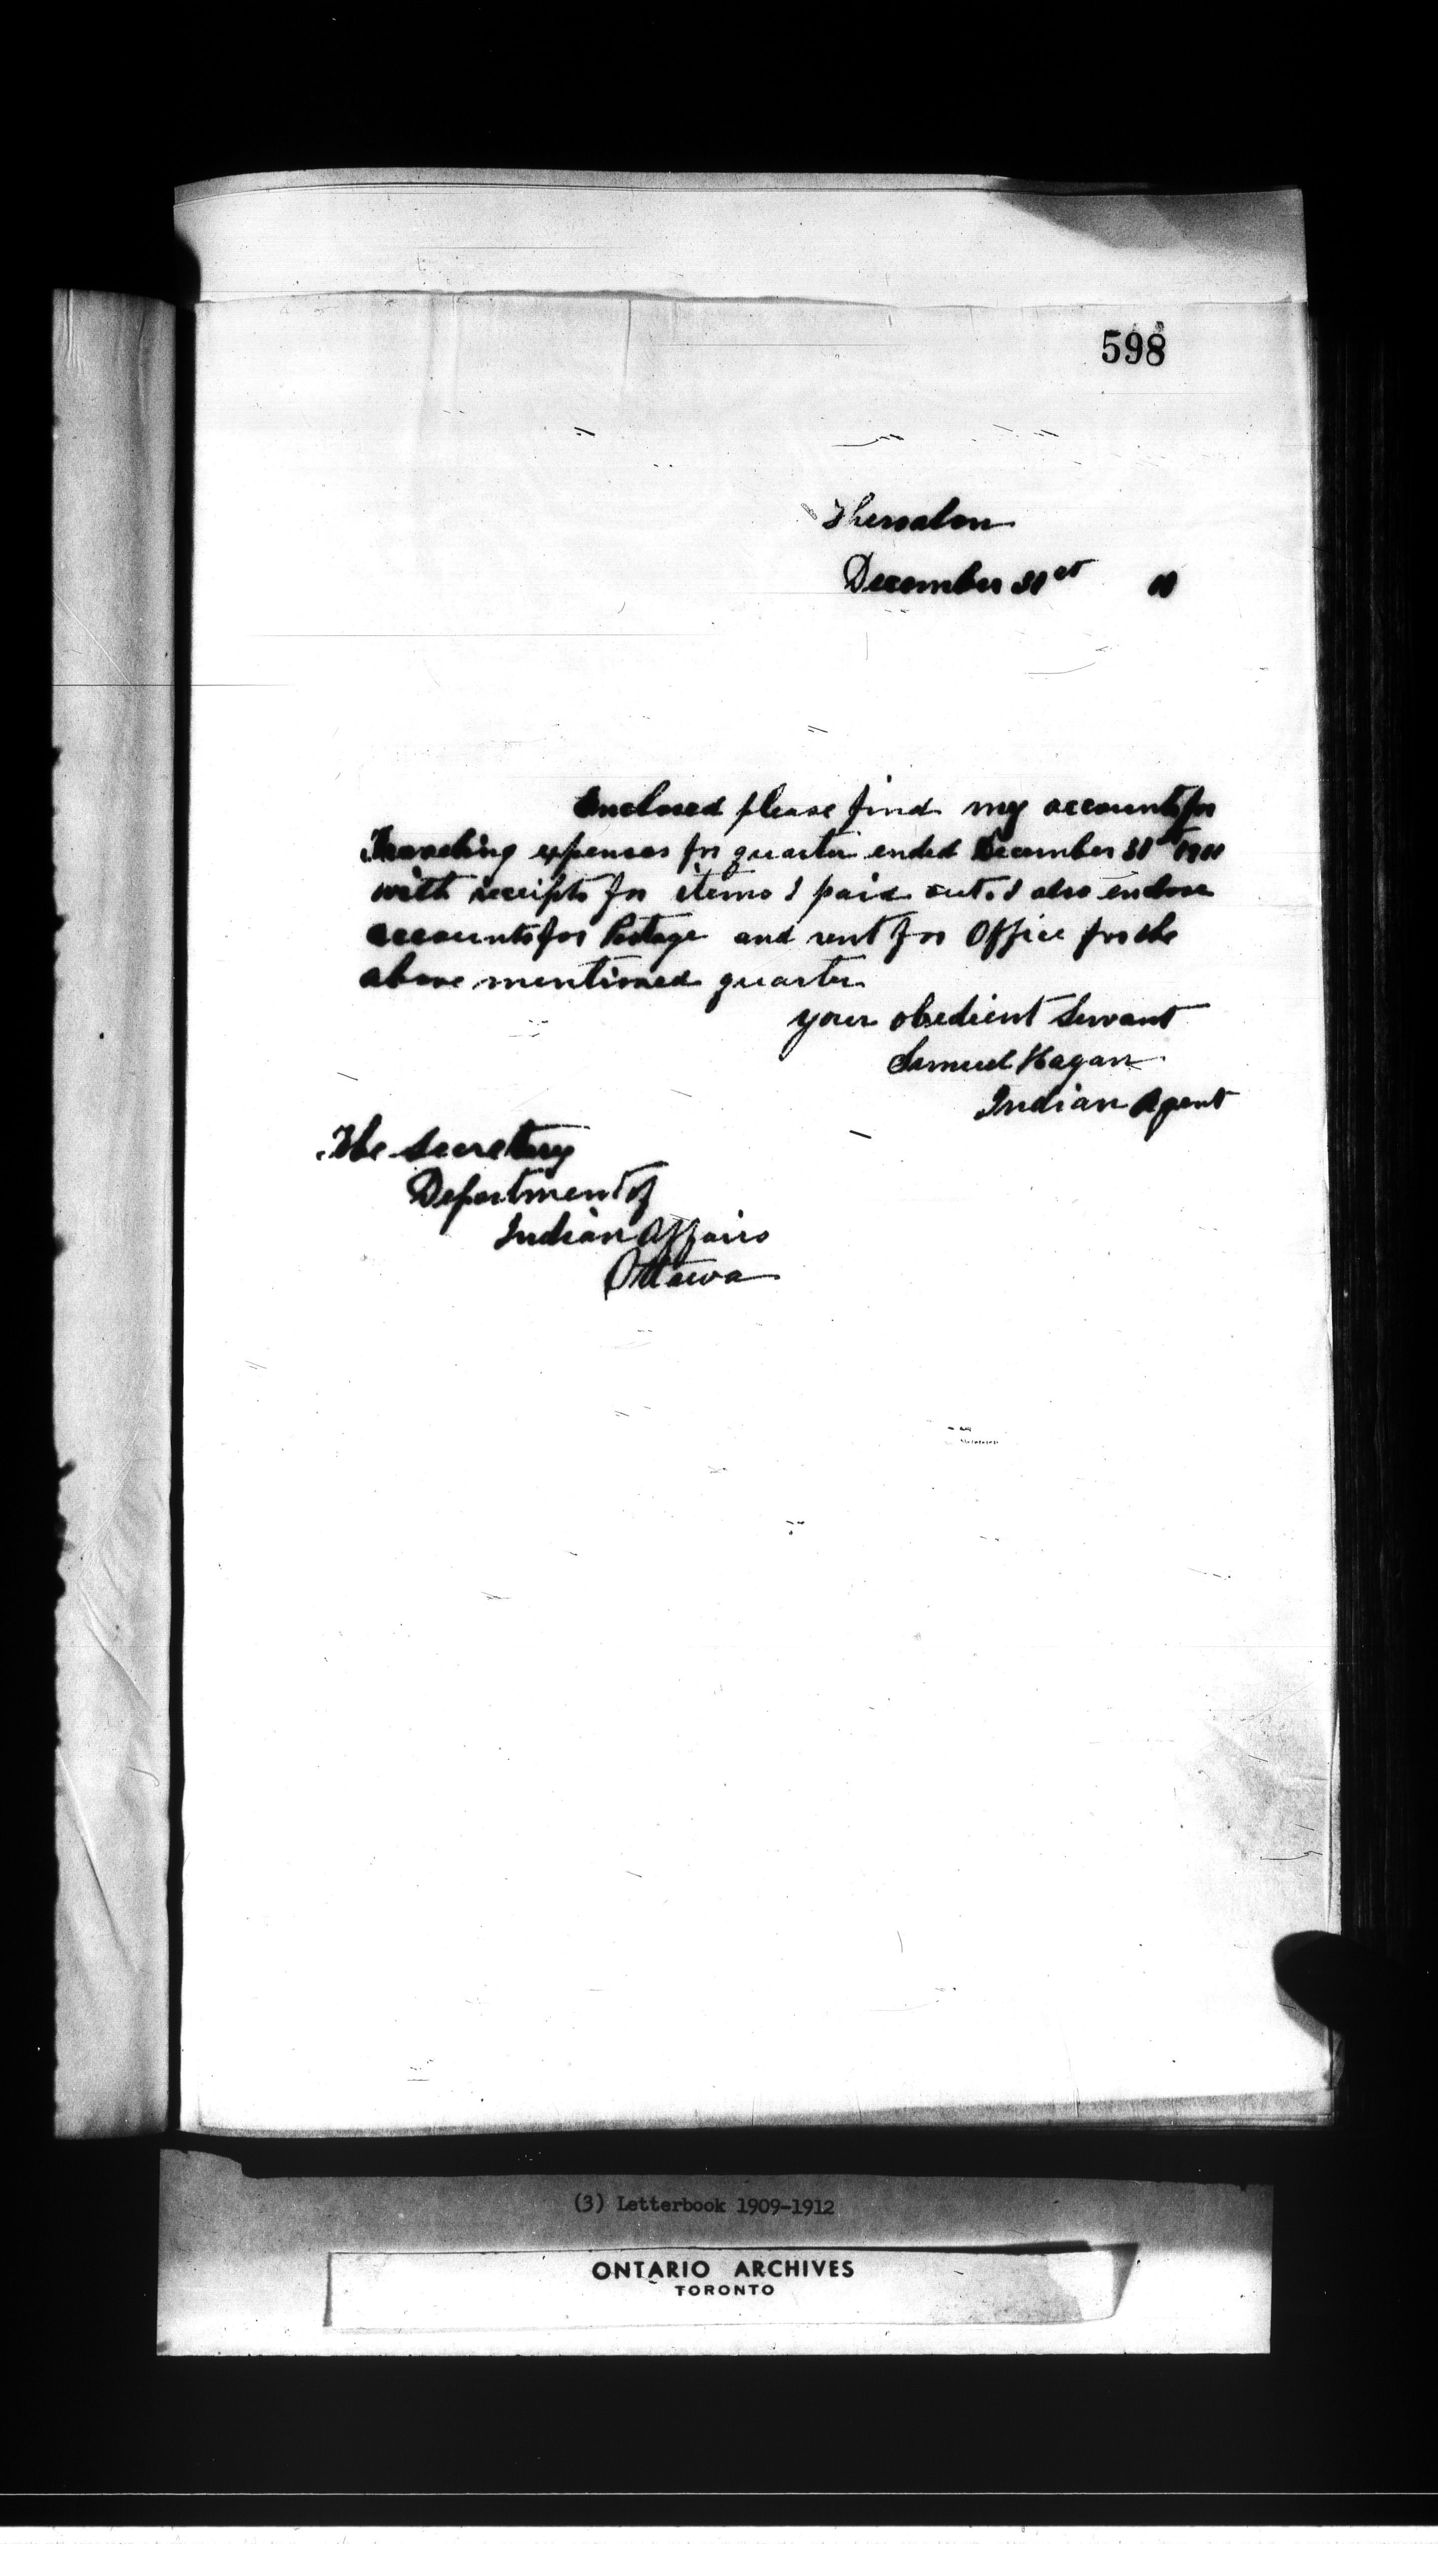 598
Thessalon
December 31st 11
Enclosed please find my accounts for
Traveling expenses for quarter ended December 31st 1911
with receipts for items I paid out. I also enclose
accounts for Postage and rent for Office for the
above mentioned quarter
your obedient Servant
Samuel Hagan
Indian Agent
The Secretary
Department of
Indian Affairs
Ottawa
(3) Letterbook 1909-1912
ONTARIO ARCHIVES
TORONTO